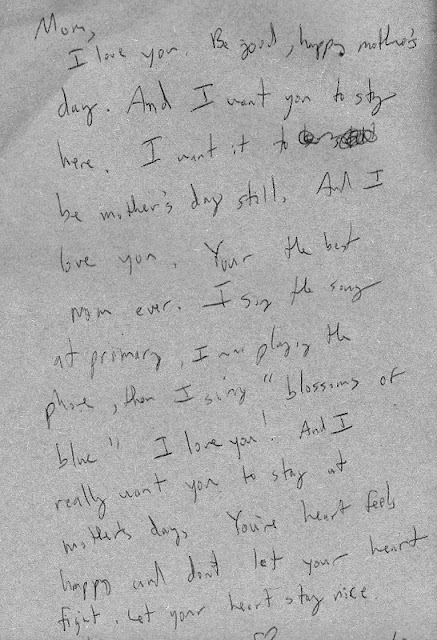 Mom,
I love you. Be good, happy mother's
day. And I want you to stay
here. I want it to
be mother's day still. And I
love you. Your the best
mom ever. I sing the song
at primary, I was playing the
phone, then I sing "blossoms of
blue" I love you! And I
really want you to stay at
mother's day. You're heart feels
happy and don't let your heart
fight. Let your heart stay nice.